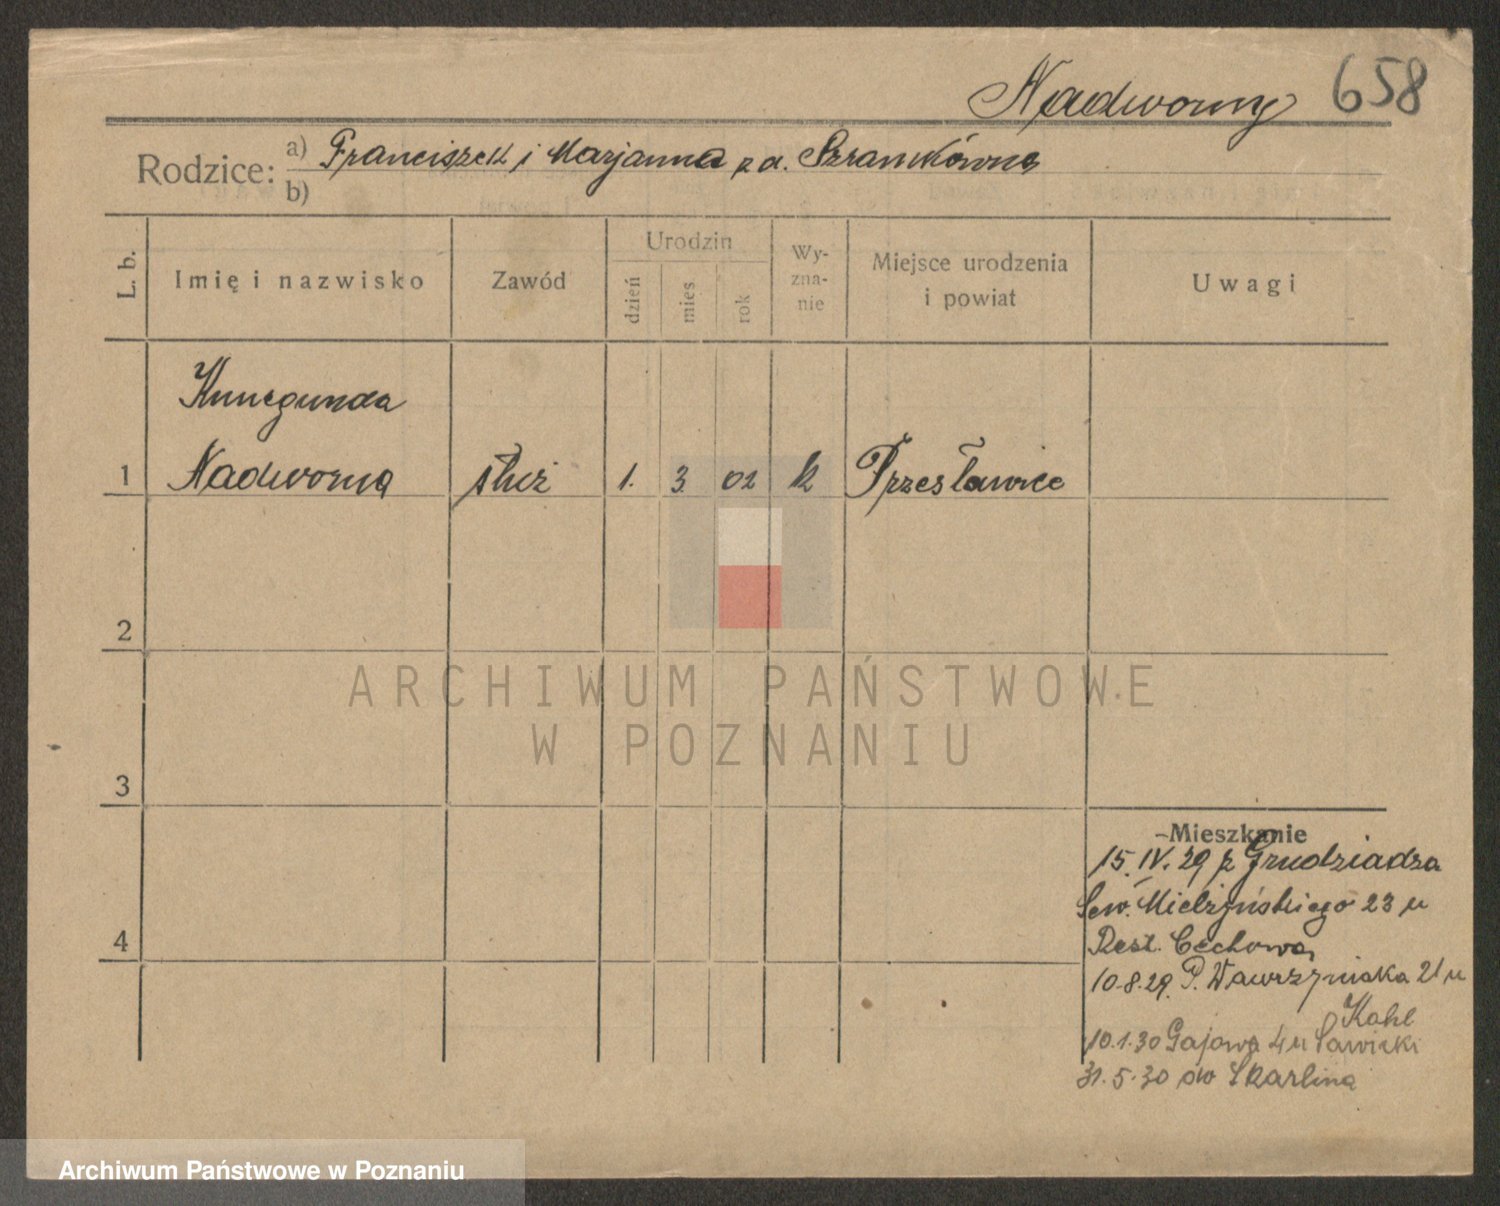 Nadworny 658
Rodzice: a) Franciszek i Marjanna z d. Szramkówna
b)
L. b.
Imię i nazwisko
Zawód
Urodzin
dzień
mies
rok
Wy-
zna-
nie
Miejsce urodzenia
i powiat
Uwagi
Kunegunda
1 Nadworna służ 1. 3 02 k Przesławice
2
ARCHIWUM PAŃSTWOWE
W POZNANIU
3
Mieszkanie
15.IV.29 z Grudziadza
Sew. Mielżyńskiego 23 u
4
Rest. Cechowa
10.8.29. P. Wawrzyniaka 21 u
Kahl
10.1.30 Gajowa 4 u Sawicki
31.5.30 do Skarlina
Archiwum Państwowe w Poznaniu